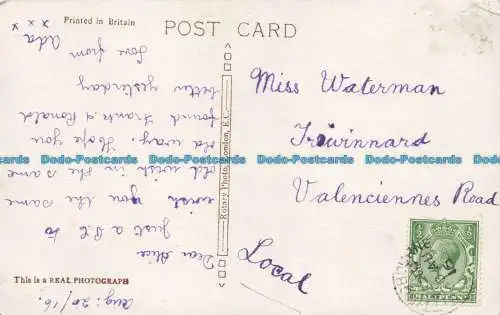 Printed in Britain
POST CARD
Dear Alice
Just a P.C to
wish you the same
old wish in the same
old way. Hope you
found Frank & Ronald
better yesterday
Love from
Ada
x x x
Aug: 20/16.
This is a REAL PHOTOGRAPH
Rotary Photo, London, E.C.
Miss Waterman
Trewinnard
Valenciennes Road
Local
HALFPENNY
Dodo-Postcards Dodo-Postcards Dodo-Postcards Dodo-Postcards Dodo-Postcards